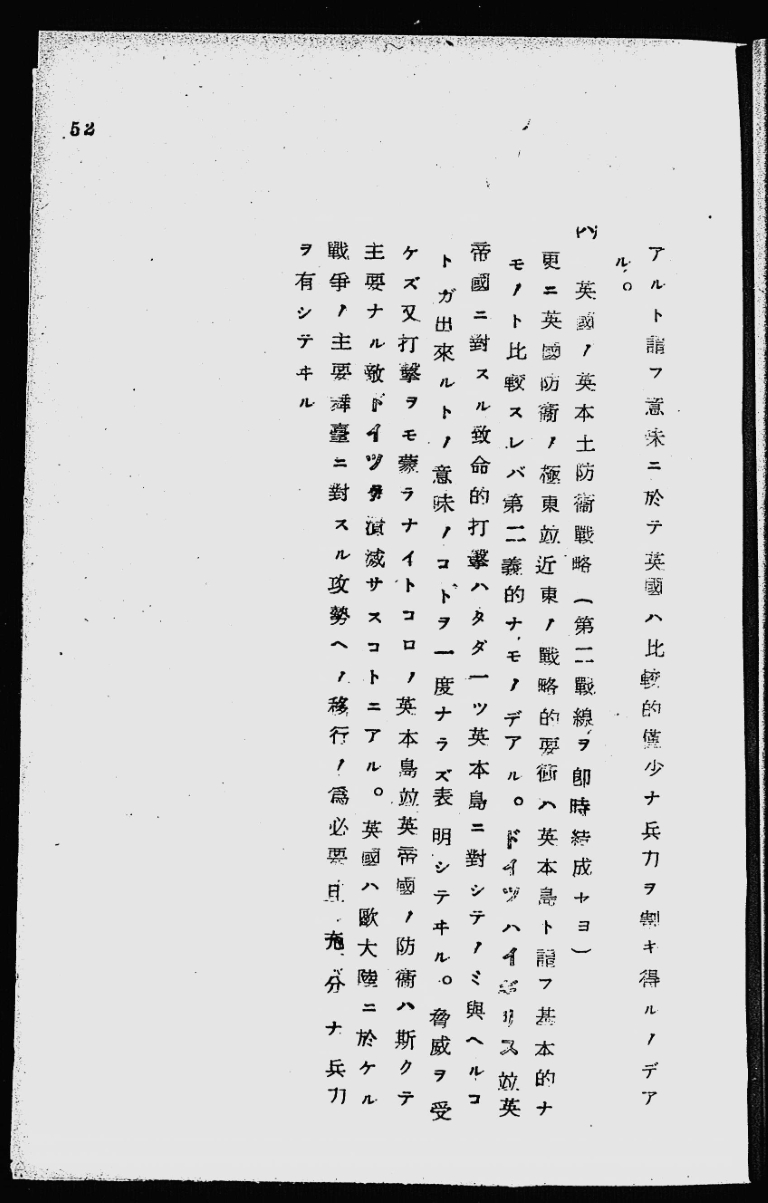 52
アルト謂フ意味ニ於テ英國ハ比較的僅少ナ兵力ヲ割キ得ルノデア
ル。
(ハ) 英國ノ英本土防衞戰略(第二戰線ヲ即時結成セヨ)
更ニ英國防衞ノ極東竝近東ノ戰略的要衝ハ英本島ト謂フ基本的ナ
モノト比較スレバ第二義的ナモノデアル。ドイツハイギリス竝英
帝國ニ對スル致命的打擊ハタダ一ツ英本島ニ對シテノミ與ヘルコ
トガ出來ルトノ意味ノコトヲ一度ナラズ表明シテヰル。脅威ヲ受
ケズ又打擊ヲモ蒙ラナイトコロノ英本島竝英帝國ノ防衞ハ斯クテ
主要ナル敵ドイツヲ潰滅サスコトニアル。英國ハ歐大陸ニ於ケル
戰爭ノ主要舞臺ニ對スル攻勢ヘノ移行ノ爲必要且充分ナ兵力
ヲ有シテヰル